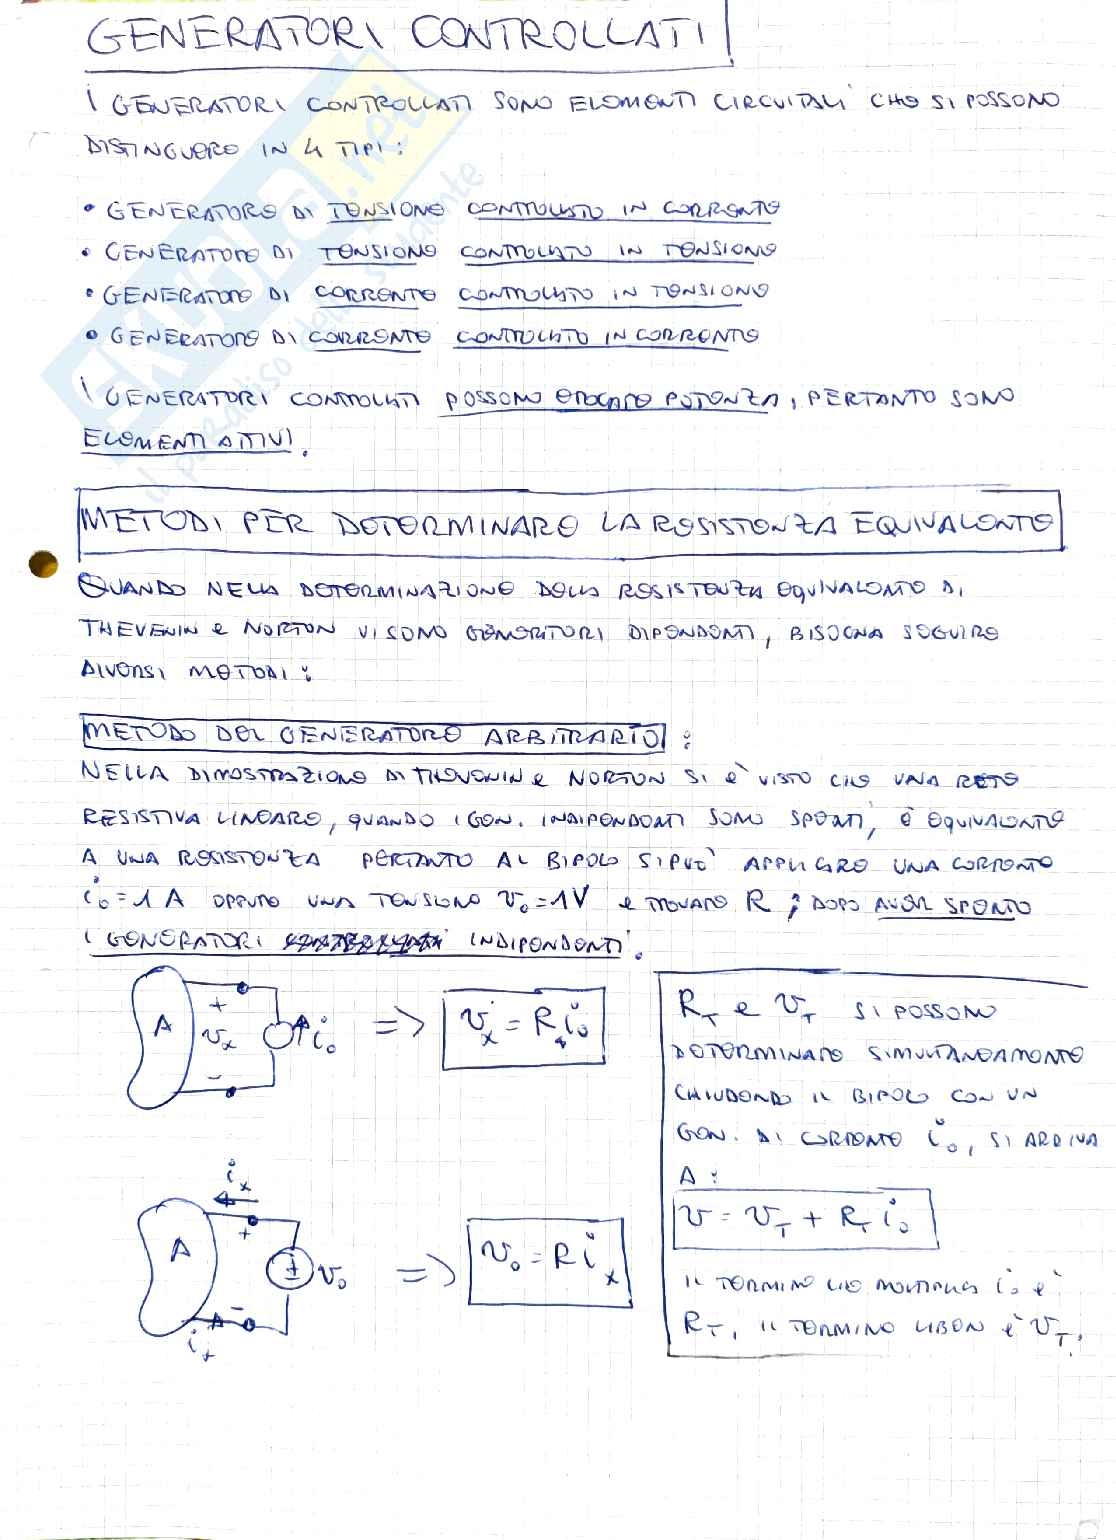 GENERATORI CONTROLLATI
I GENERATORI CONTROLLATI SONO ELEMENTI CIRCUITALI CHE SI POSSONO
DISTINGUERE IN 4 TIPI:
• GENERATORE DI TENSIONE CONTROLLATO IN CORRENTE
• GENERATORE DI TENSIONE CONTROLLATO IN TENSIONE
• GENERATORE DI CORRENTE CONTROLLATO IN TENSIONE
• GENERATORE DI CORRENTE CONTROLLATO IN CORRENTE
I GENERATORI CONTROLLATI POSSONO EROGARE POTENZA, PERTANTO SONO
ELEMENTI ATTIVI.
METODI PER DETERMINARE LA RESISTENZA EQUIVALENTE
QUANDO NELLA DETERMINAZIONE DELLA RESISTENZA EQUIVALENTE DI
THEVENIN e NORTON VI SONO GENERATORI DIPENDENTI, BISOGNA SEGUIRE
DIVERSI METODI:
METODO DEL GENERATORE ARBITRARIO:
NELLA DIMOSTRAZIONE DI THEVENIN e NORTON SI è VISTO CHE UNA RETE
RESISTIVA LINEARE, QUANDO I GEN. INDIPENDENTI SONO SPENTI, è EQUIVALENTE
A UNA RESISTENZA PERTANTO AL BIPOLO SI PUò APPLICARE UNA CORRENTE
i₀ = 1 A OPPURE UNA TENSIONE v₀ = 1V e TROVARE R, DOPO AVER SPENTO
I GENERATORI INDIPENDENTI.
A + vₓ - i₀ => vₓ = R i₀
R_T e v_T SI POSSONO
DETERMINARE SIMULTANEAMENTE
CHIUDENDO IL BIPOLO CON UN
GEN. DI CORRENTE i₀, SI ARRIVA
A:
v = v_T + R_T i₀
IL TERMINE CHE MOLTIPLICA i₀ è
R_T, IL TERMINE LIBERO è v_T.
iₓ
A + - v₀ => v₀ = R iₓ
iₓ
SKUOLA.net
il paradiso dello studente